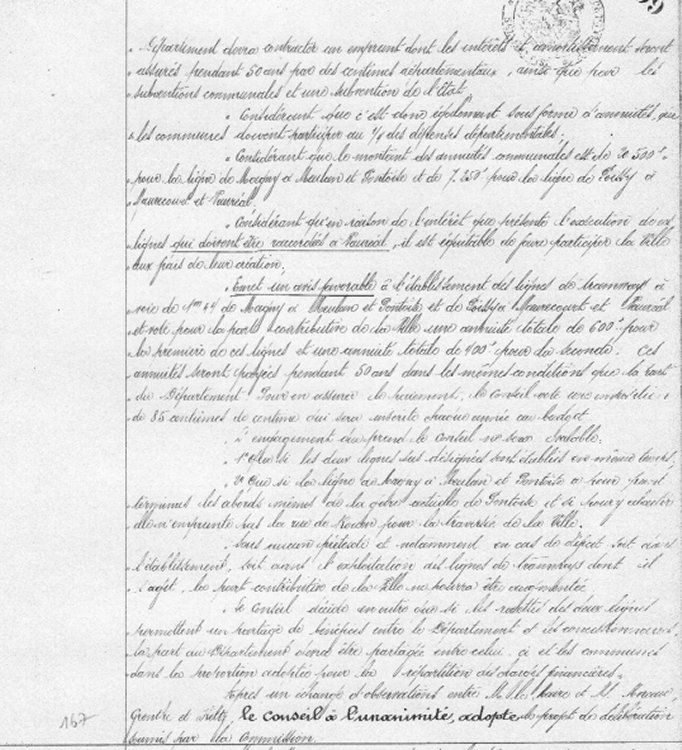 " Département devra contracter un emprunt dont les intérêts et amortissement seront
" assurés pendant 50 ans par des centimes départementaux, ainsi que par les
" subventions communales et une subvention de l'État,
" Considérant que c'est donc également sous forme d'annuités, que
" les communes doivent participer au 1/4 des dépenses départementales.
" Considérant que le montant des annuités communales est de 20 500f
" pour la ligne de Magny à Meulan et Pontoise et de 7.250f pour la ligne de Poissy à
" Maurecourt et Vauréal.
" Considérant qu'en raison de l'intérêt que présente l'exécution de ces
" lignes qui doivent être raccordées à Vauréal, il est équitable de faire participer la Ville
" aux frais de leur création,
" Emet un avis favorable à l'établissement des lignes de tramways à
" voie de 1m44 de Magny à Meulan et Pontoise et de Poissy à Maurecourt et Vauréal
" et vote pour la part contributive de la Ville une annuité totale de 600f pour
" la première de ces lignes et une annuité totale de 400f pour la seconde. Ces
" annuités seront payées pendant 50 ans dans les mêmes conditions que la part
" du Département. Pour en assurer le paiement, le Conseil vote une imposition
" de 85 centièmes de centime qui sera inscrite chaque année au budget
" L'engagement que prend le Conseil ne sera valable:
" 1° Que si les deux lignes sus désignées sont établies en même temps,
" 2° Que si la ligne de Magny à Meulan et Pontoise a pour point
" terminus les abords mêmes de la gare actuelle de Pontoise et si pour y accéder
" elle n'emprunte pas la rue de Rouen pour la traversée de la Ville.
" Sous aucun prétexte et notamment en cas de déficit soit dans
" l'établissement, soit dans l'exploitation des lignes de tramways dont il
" s'agit, la part contributive de la Ville ne pourra être augmentée
" Le Conseil décide en outre que si les recettes des deux lignes
" permettent un partage de bénéfices entre le Département et les concessionnaires,
" la part du Département devra être partagée entre celui-ci et les communes
" dans la proportion adoptée pour la répartition des charges financières.
Après un échange d'observations entre M. le Maire et M.
le conseil à l'unanimité, adopte le projet de délibération
soumis par la Commission.
167